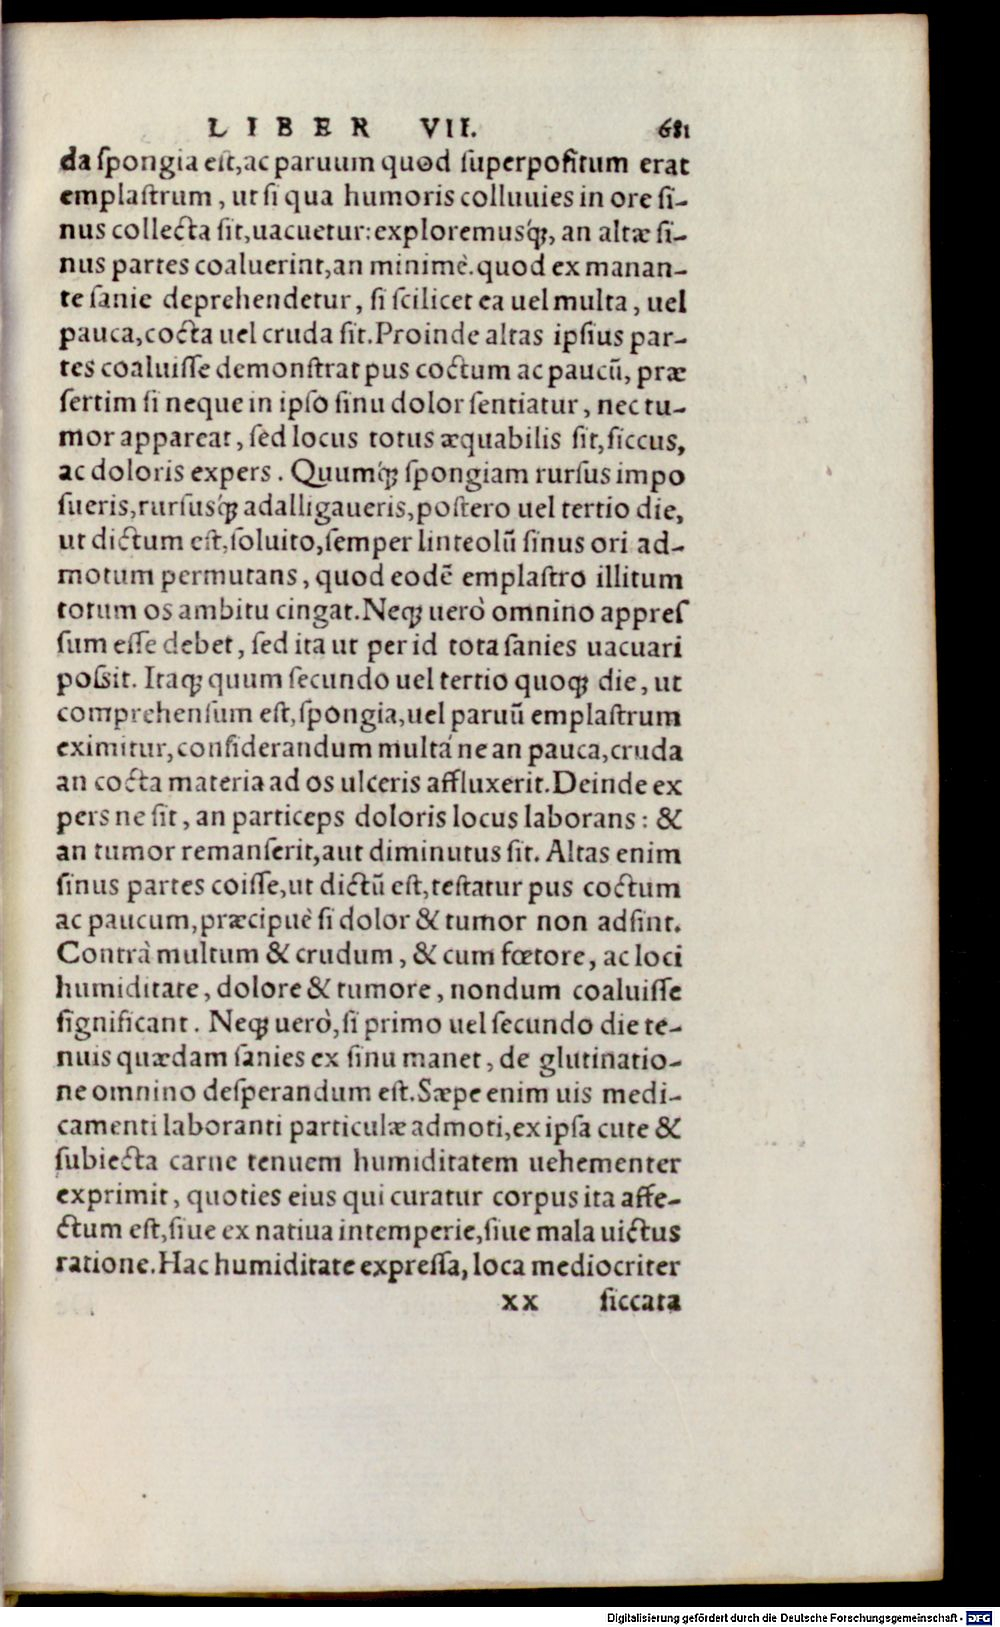 LIBER VII. 681
da ſpongia eſt,ac paruum quod ſuperpoſitum erat
emplaſtrum, ut ſi qua humoris colluuies in ore ſi-
nus collecta ſit,uacuetur: exploremusq́;, an altæ ſi-
nus partes coaluerint,an minimè.quod ex manan-
te ſanie deprehendetur, ſi ſcilicet ea uel multa, uel
pauca,cocta uel cruda ſit.Proinde altas ipſius par-
tes coaluiſſe demonſtrat pus coctum ac paucū, præ
ſertim ſi neque in ipſo ſinu dolor ſentiatur, nec tu-
mor appareat, ſed locus totus æquabilis ſit,ſiccus,
ac doloris expers. Quumq́; ſpongiam rurſus impo
ſueris,rurſusq́; adalligaueris,poſtero uel tertio die,
ut dictum eſt,ſoluito,ſemper linteolū ſinus ori ad-
motum permutans, quod eodē emplaſtro illitum
totum os ambitu cingat.Neq; uerò omnino appreſ
ſum eſſe debet, ſed ita ut per id tota ſanies uacuari
poſsit. Itaq; quum ſecundo uel tertio quoq; die, ut
comprehenſum eſt,ſpongia,uel paruū emplaſtrum
eximitur,conſiderandum multá ne an pauca,cruda
an cocta materia ad os ulceris affluxerit.Deinde ex
pers ne ſit, an particeps doloris locus laborans: &
an tumor remanſerit,aut diminutus ſit. Altas enim
ſinus partes coiſſe,ut dictū eſt,teſtatur pus coctum
ac paucum,præcipuè ſi dolor & tumor non adſint.
Contrà multum & crudum, & cum fœtore, ac loci
humiditate, dolore & tumore, nondum coaluiſſe
ſignificant. Neq; uerò,ſi primo uel ſecundo die te-
nuis quædam ſanies ex ſinu manet, de glutinatio-
ne omnino deſperandum eſt.Sæpe enim uis medi-
camenti laboranti particulæ admoti,ex ipſa cute &
ſubiecta carne tenuem humiditatem uehementer
exprimit, quoties eius qui curatur corpus ita affe-
ctum eſt,ſiue ex natiua intemperie,ſiue mala uictus
ratione.Hac humiditate expreſſa, loca mediocriter
xx ſiccata
Digitalisierung gefördert durch die Deutsche Forschungsgemeinschaft - DFG